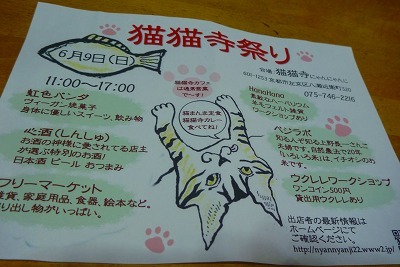 猫猫寺祭り
6月9日(日)
11:00〜17:00
会場:猫猫寺にゃんにゃんじ
京都市左京区八瀬近衛町5
075-746-2216
猫猫寺カフェ
は通常営業
で〜す!
猫まんま定食
猫猫寺カレー
食べてね!
虹色パンダ
ヴィーガン焼菓子
身体に優しいスイーツ、飲み物
心酒(しんしゅ)
お酒の神様に愛されてる店主
が選ぶ特別のお酒!
日本酒 ビール おつまみ
フリーマーケット
雑貨、家庭用品、食器、絵本など。
掘り出し物がいっぱい。
HanaHana
羊毛フェルト雑貨
ワークショップあり
ベジラボ
米です。
ウクレレワークショップ
ワンコイン500円
貸出用ウクレレあり
出店者の最新情報は
ホームページにて
ご確認ください。
http://nyannyanji22.www2.jp/